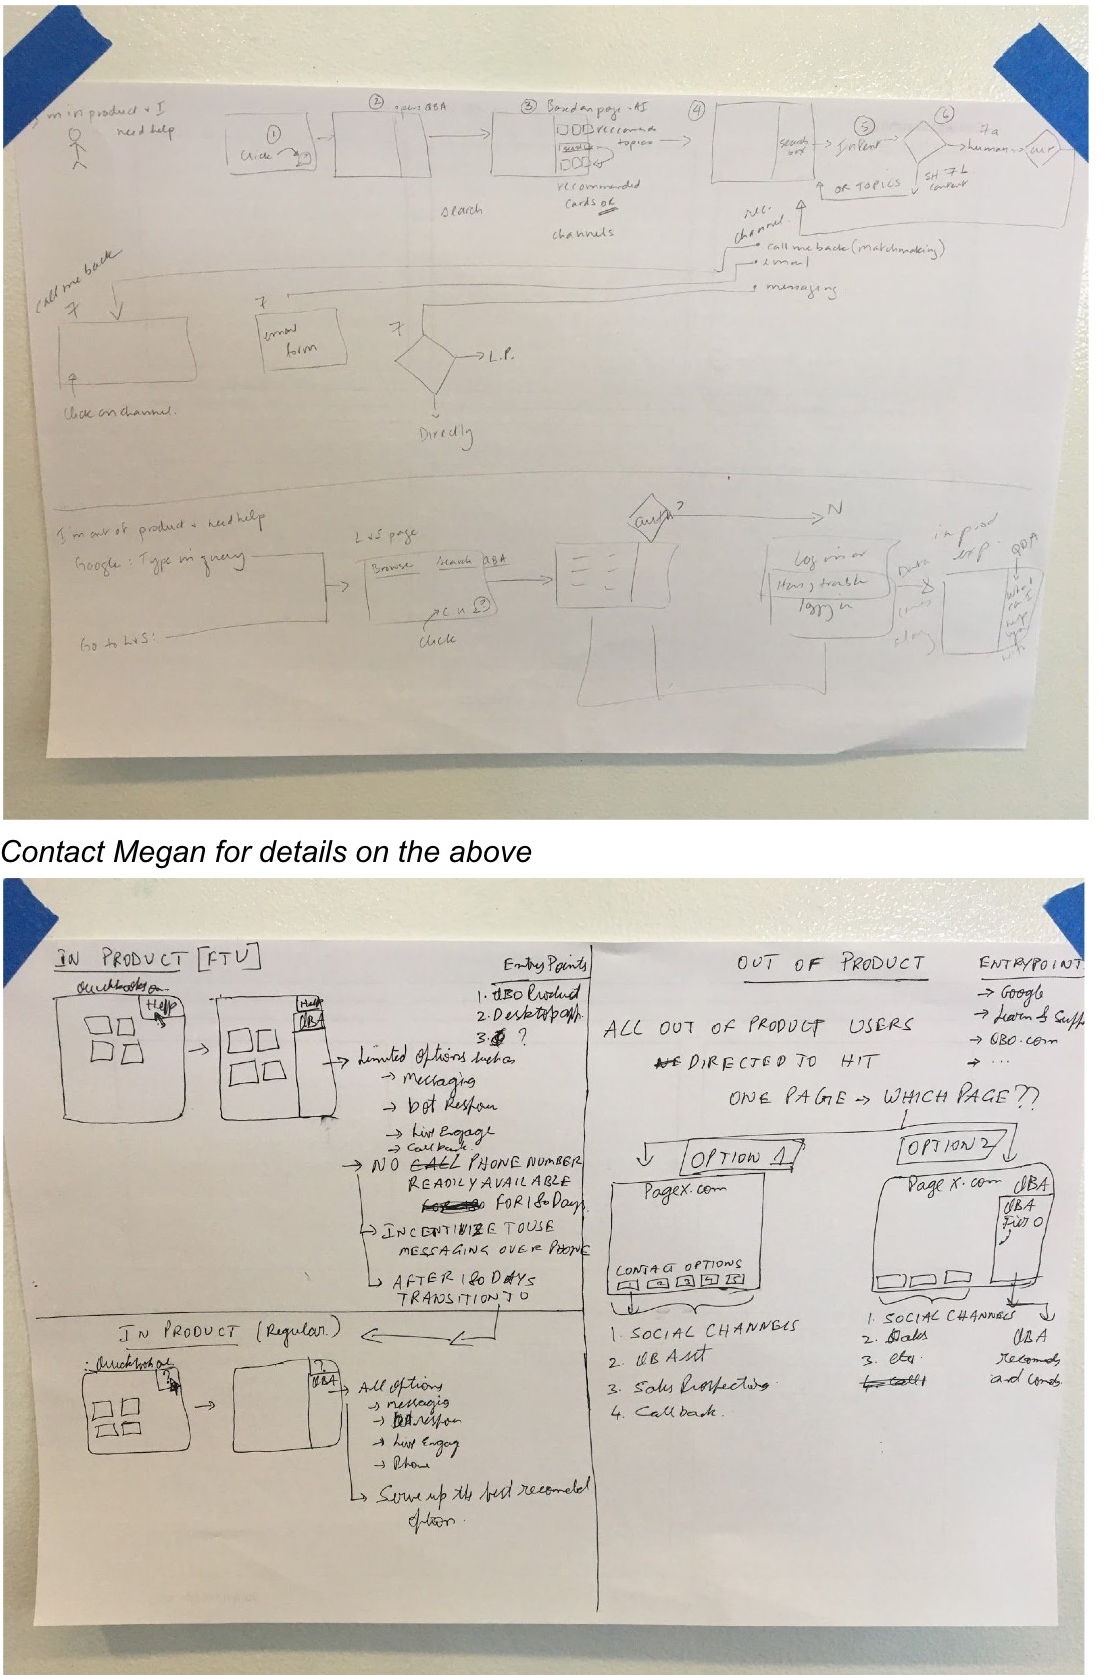 I'm in product + I
need help
①
Click
② opens QBA
③ Based on page - AI
recommends
topics
search
recommended
cards or
channels
search
④
search
box
⑤
Intent
⑥
If a
human
OR TOPICS
content
rec.
channel
call me back (matchmaking)
email
messaging
Call me back
7
Click on channel.
7
email
form
7
L.P.
Directly
I'm out of product + need help
Google: Type in query
Go to L+S:
L+S page
Browse Search QBA
C U
Click
auth?
N
Log in or
Data
comes
along
in prod
exp.
Contact Megan for details on the above
IN PRODUCT [FTU]
Help
Help
QBA
Entry Points
1. QBO Product
2. Desktop app.
3. ?
Limited options such as
→ Messaging
→ bot Respon
→ Live Engage
→ Callback.
→ NO CALL PHONE NUMBER
READILY AVAILABLE
FOR 180 Days.
→ INCENTIVIZE TO USE
MESSAGING OVER PHONE
→ AFTER 180 DAYS
TRANSITION TO
IN PRODUCT (Regular)
?
?
QBA
All options
→ messagig
→ Bot respon
→ Live Engag
→ Phone
Serve up the best recomeded
option.
OUT OF PRODUCT
ENTRYPOINT
→ Google
→ Learn & Supp
→ QBO.com
→ ...
ALL OUT OF PRODUCT USERS
DIRECTED TO HIT
ONE PAGE → WHICH PAGE??
OPTION 1
PageX.com
CONTACT OPTIONS
1. SOCIAL CHANNELS
2. QB Asst
3. Sales Prospecting
4. Callback.
OPTION 2
Page X.com QBA
QBA
Tier 0
1. SOCIAL CHANNELS
2. Sales
3. etc.
4. call
QBA
recomds